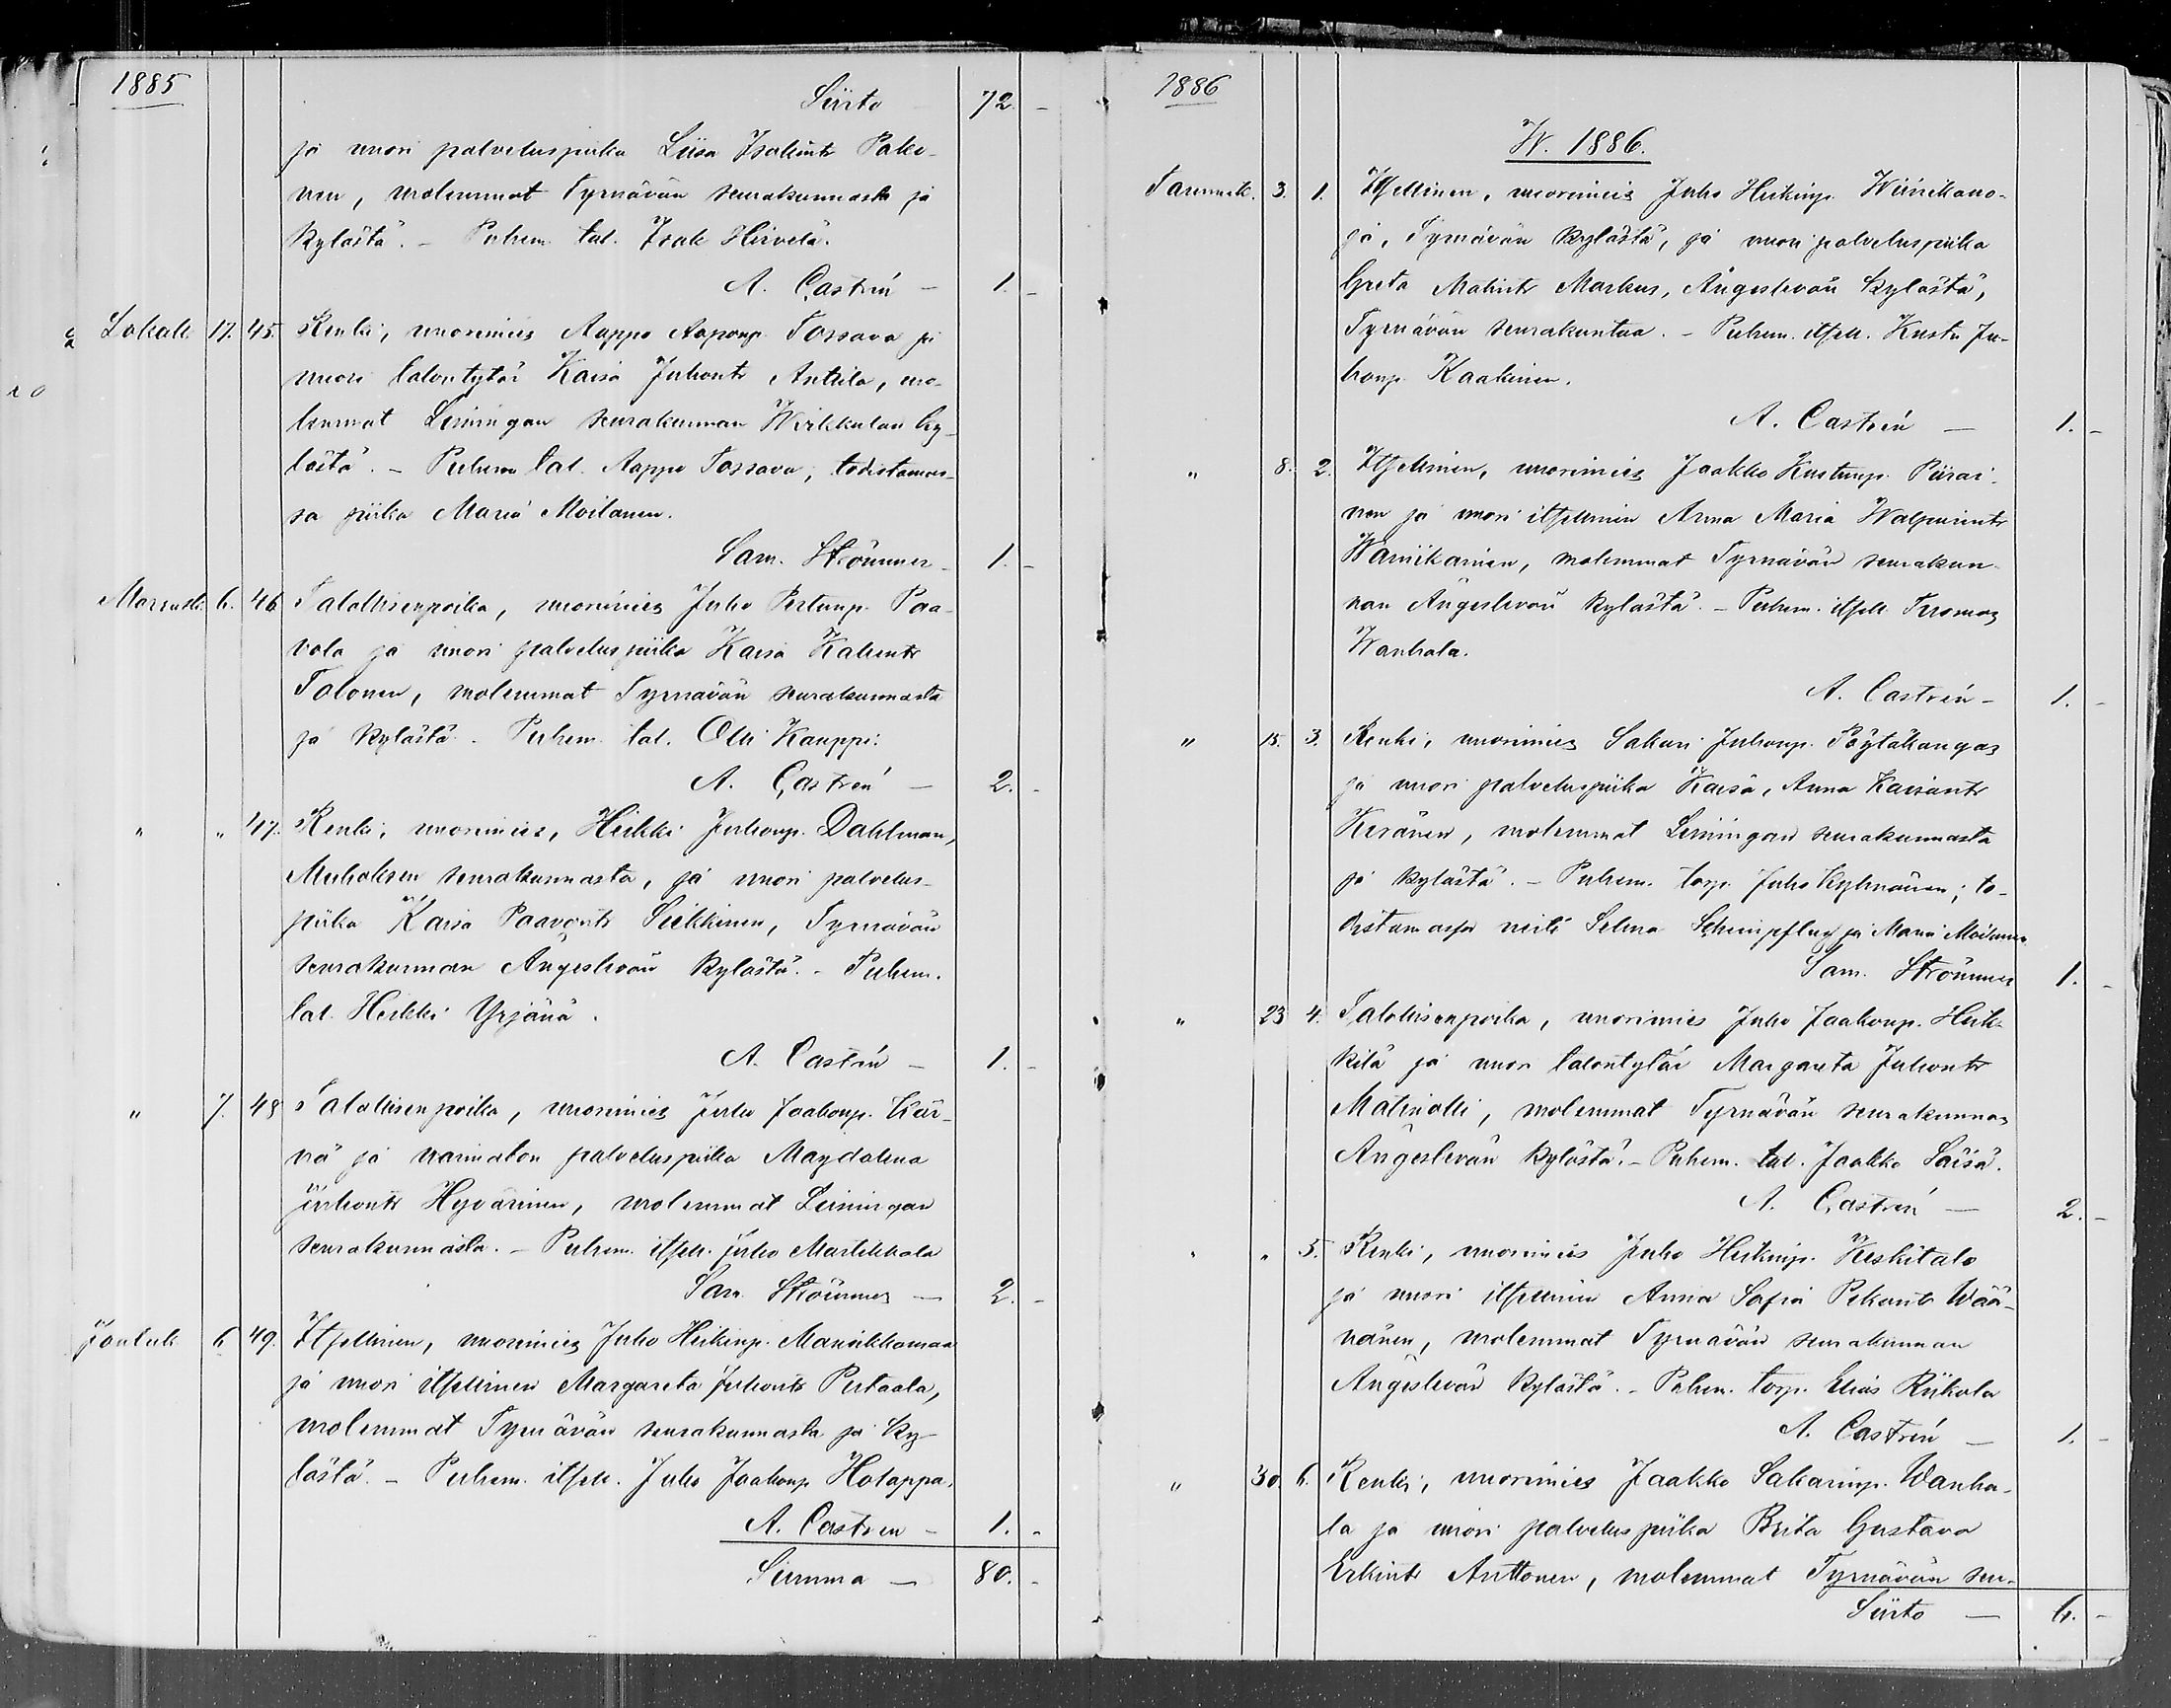 1885
Siirto 72. -
ja nuori palveluspiika Liisa Isakintr Pako-
nen, molemmat Tyrnävän seurakunnasta ja
kylästä. - Puhem. tal. Isak Hirvelä.
A. Castrén - 1. -
Lokak. 17. 45. Renki, nuorimies Aappo Aaponp. Tossava ja
nuori talontytär Kaisa Juhontr Anttila, mo-
lemmat Limingan seurakunnan Wirkkulan ky-
lästä. - Puhem tal. Aappo Tossava, todistamas-
sa piika Maria Moilanen.
Sam. Strömmer - 1. -
Marrask. 6. 46. Talollisenpoika, nuorimies Juho Pertunp. Paa-
vola ja nuori palveluspiika Kaisa Kallentr
Tolonen, molemmat Tyrnävän seurakunnasta
ja kylästä. - Puhem. tal. Olli Kauppi.
A. Castrén - 2. -
" " 47. Renki, nuorimies, Heikki Juhonp. Dahlman,
Muhoksen seurakunnasta, ja nuori palvelus-
piika Kaisa Paavontr Siekkinen, Tyrnävän
seurakunnan Ängeslevän kylästä. - Puhem.
tal. Heikki Yrjänä.
A. Castrén - 1. -
" 7. 48 Talollisenpoika, nuorimies Juho Jaakonp. Kär-
nä ja naimaton palveluspiika Magdalena
Juhontr Hyvärinen, molemmat Limingan
seurakunnasta. - Puhem. itsell. Juho Martikkala
Sam. Strömmer - 2. -
Jouluk. 6 49. Itsellinen, nuorimies Juho Heikinp. Mansikkamaa
ja nuori itsellinen Margareta Juhontr Pirtaala,
molemmat Tyrnävän seurakunnasta ja ky-
lästä. - Puhem. itsell. Juho Jaakonp Holappa.
A. Castren - 1. -
Summa - 80. -
1886
W. 1886.
Tammik. 3. 1. Itsellinen, nuorimies Juho Heikinp. Wiinikano-
ja, Tyrnävän kylästä, ja nuori palveluspiika
Greta Matintr Markus, Ängeslevän kylästä,
Tyrnävän seurakuntaa. - Puhem. itsell. Kusta Ju-
honp. Kaakinen.
A. Castrén - 1. -
" 8. 2. Itsellinen, nuorimies Jaakko Kustunp. Piirai-
nen ja nuori itsellinen Anna Maria Walpurintr
Wänskäninen, molemmat Tyrnävän seurakun-
nan Ängeslevän kylästä. - Puhem. itsell. Tuomas
Wanhala.
A. Castrén - 1. -
" 15. 3. Renki, nuorimies Sakari Juhonp. Pöytäkangas
ja nuori palveluspiika Kaisa, Anna Kaisantr
Keränen, molemmat Limingan seurakunnasta
ja kylästä. - Puhem. torp. Juho Kylmänen; to-
distamassa neiti Selma Scheinpflug ja Maria Moilanen
Sam. Strömmer 1. -
" 23 4. Talollisenpoika, nuorimies Juho Jaakonp. Heik-
kilä ja nuori talontytär Margareta Juhontr
Matinolli, molemmat Tyrnävän seurakunnan
Ängeslevän kylästä. - Puhem. tal. Jaakko Säisä.
A. Castrén - 2. -
" " 5. Renki, nuorimies Juho Heikinp. Keskitalo
ja nuori itsellinen Anna Sofia Pekantr Wää-
nänen, molemmat Tyrnävän seurakunnan
Ängeslevän kylästä. - Puhem. torp. Elias Riikola
A. Castrén - 1. -
" 30. 6. Renki, nuorimies Jaakko Sakarinp. Wanha-
la ja nuori palveluspiika Brita Gustava
Erkintr Anttonen, molemmat Tyrnävän seu-
Siirto - 6. -